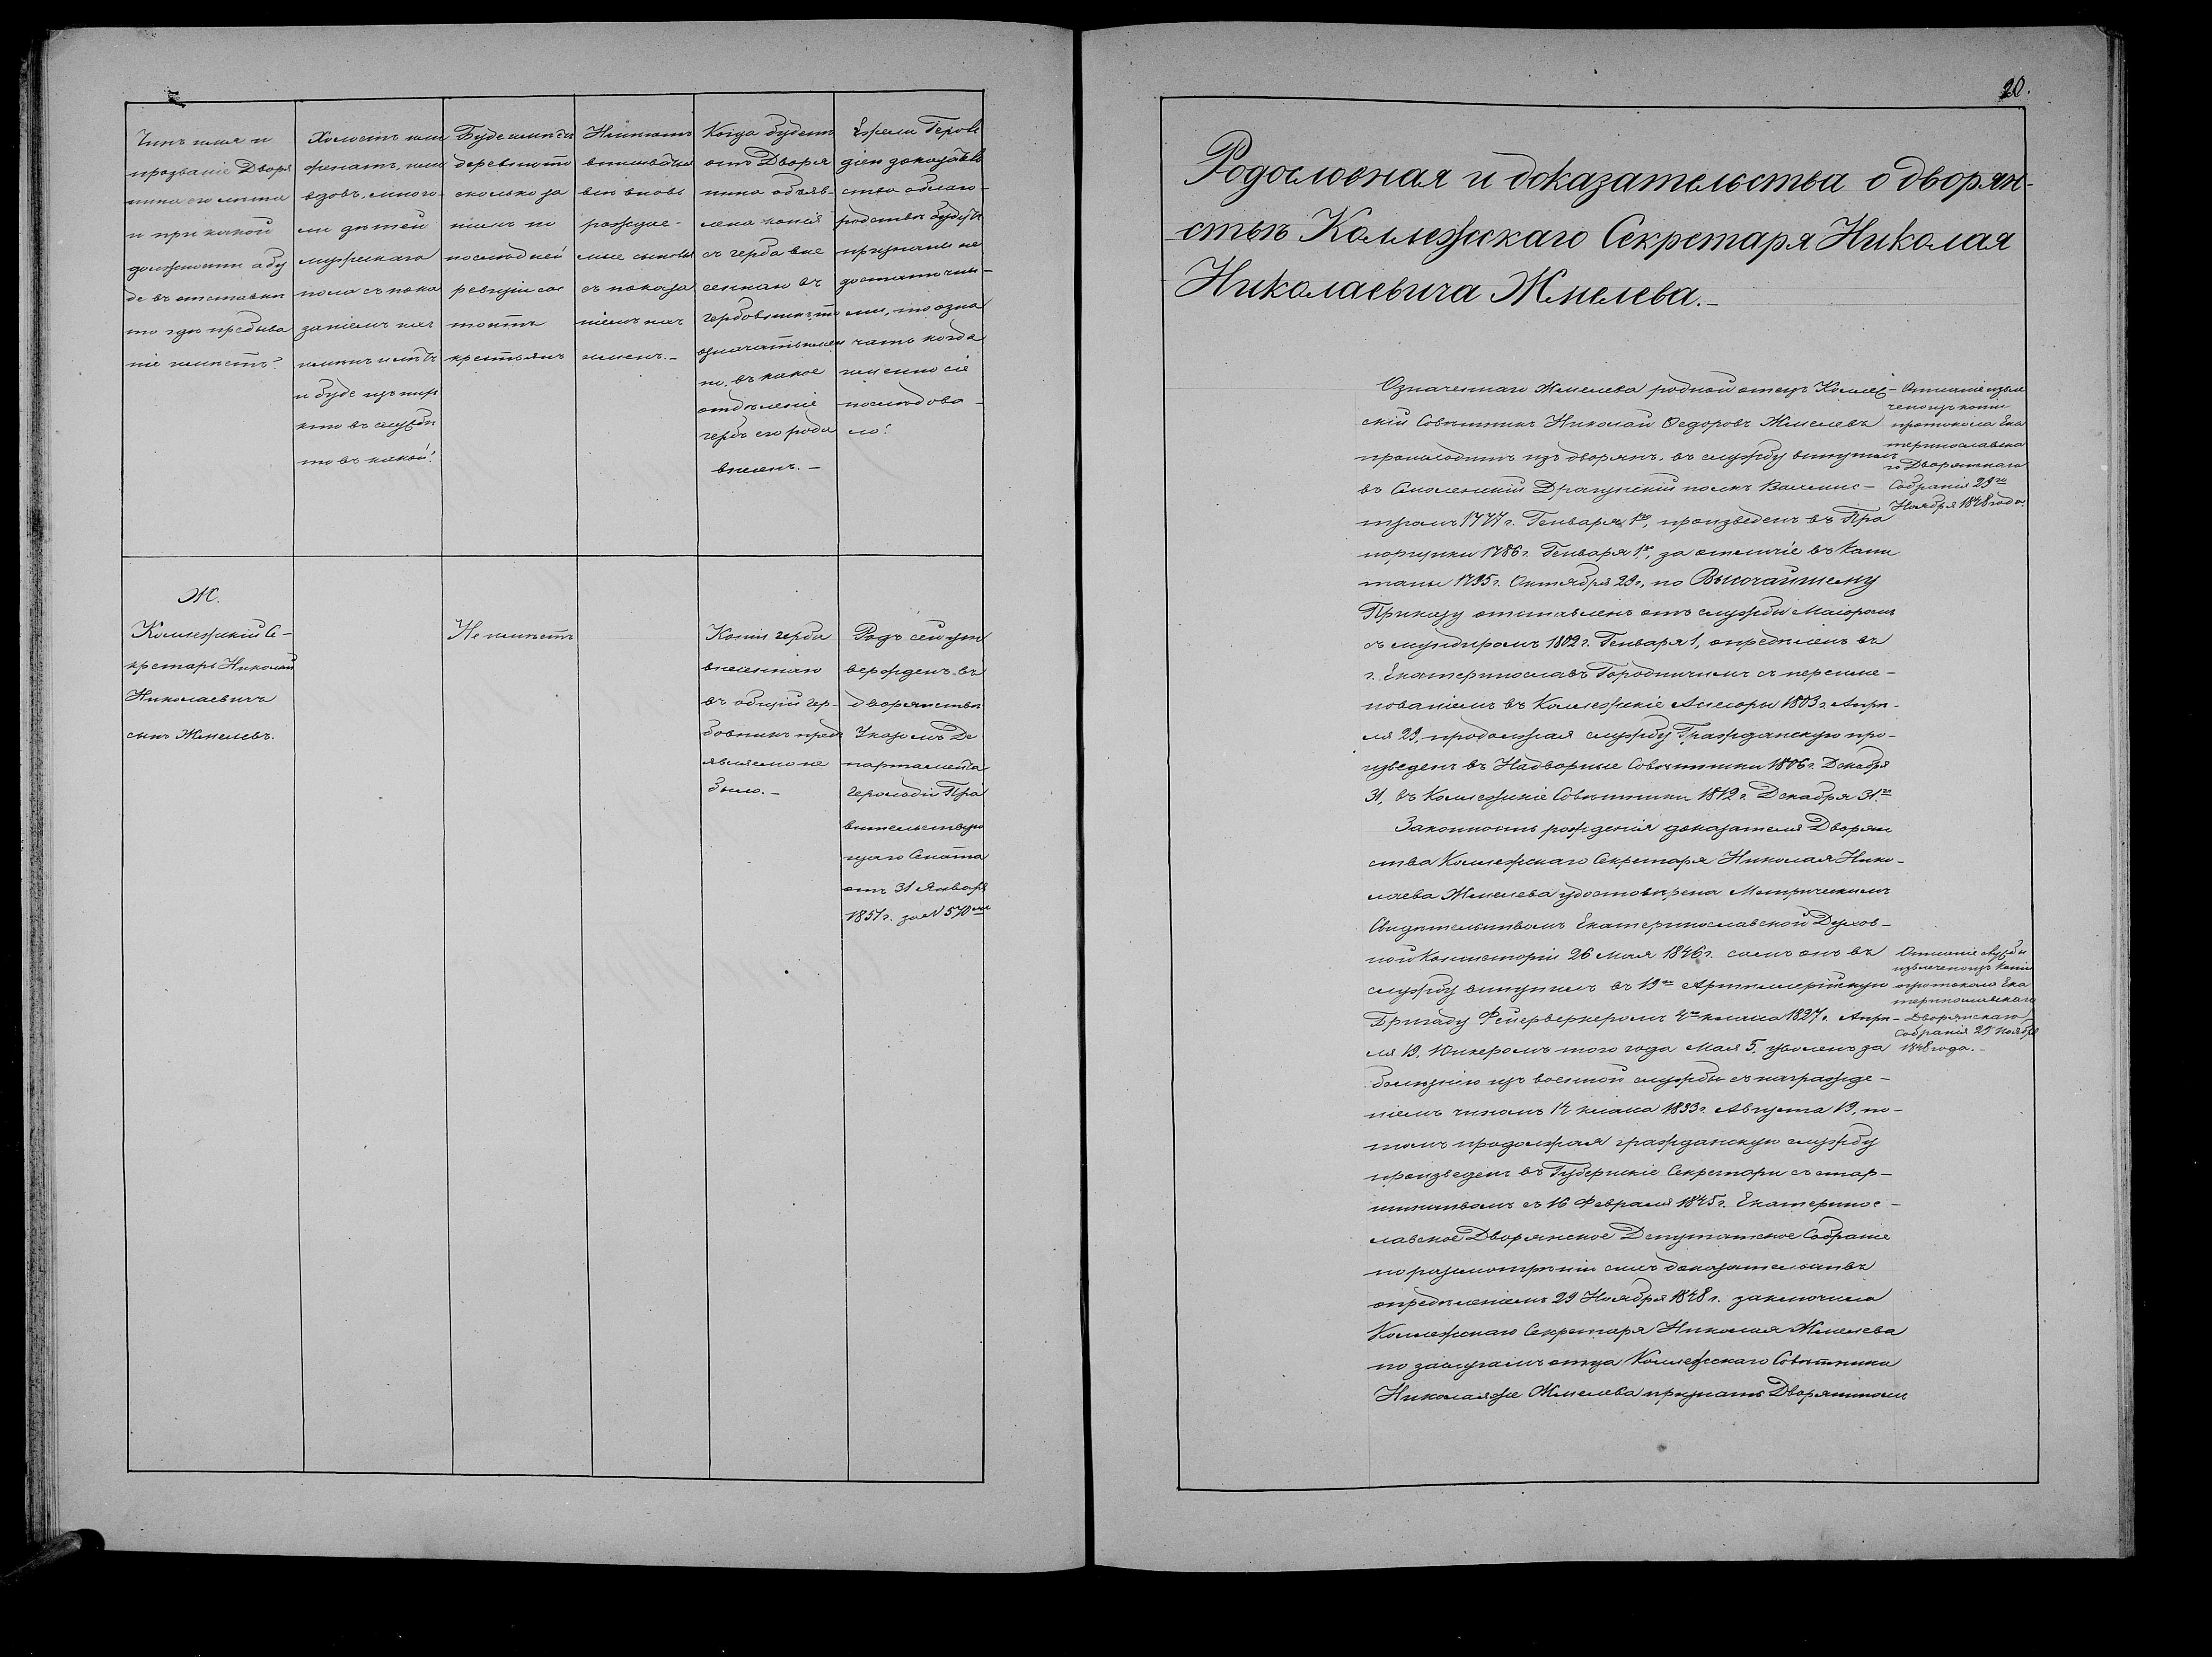 Чинъ имя и
прозваніе Дворя
нина его лѣта
и при какой
должности абу
де въ отставки
то гдѣ пребыва
ніе имѣетъ?
Холостъ или
женатъ, или
вдовъ, много-
ли дѣтей
мужескаго
пола съ пока
заніемъ каг
имянъ илѣтъ
и буде изъ нихъ
кто въ службѣ
то въ какой?
Буде имѣетъ
деревни то
сколько за
нимъ по
послѣдней
ревизіи сос
тоитъ
крестьянъ
Имѣютъ
вписываться
всѣ вновь
рождае-
мые сыновья
съ показа
ніемъ ихъ
именъ.-
Когда будетъ
отъ Дворя
нина объяв-
лена копія
съ герба вне
сеннаго въ
гербовникъ, то
означать имен
но, въ какое
отдѣленіе
гербъ его рода
внесенъ.-
Ежели Героль
діею доказатель
ства облаго-
родствѣ будутъ
признаны не
достаточны-
ми, то озна
чать когда
именно сіе
послѣдова-
ло?
Ж.
Коллежскій Се-
кретарь Николай
Николаевичъ
сынъ Жмелевъ.
Не имѣетъ
Копіи герба
внесеннаго
въ общій гер-
бовникъ предъ
являемо не
было.-
Родъ сей ут
вержденъ въ
дворянствѣ
Указомъ Де
партамента
Герольдіи Пра
вительствую
щаго Сената
отъ 31 Января
1851 г. за N 570мъ
20.
Родословная и доказательства о дворян-
ствѣ Коллежскаго Секретаря Николая
Николаевича Жмелева.-
Означеннаго Жмелева родной отецъ Коллеж-
скій Совѣтникъ Николай Ѳедоровъ Жмелевъ
происходитъ изъ дворянъ, въ службу вступилъ
въ Смоленскій Драгунскій полкъ Вахмис-
тромъ 1777 г. Генваря 1го, произведенъ въ Пра
порщики 1786 г. Генваря 1го, за отличіе въ Капи
таны 1795 г. Октября 29, по Высочайшему
Приказу отставленъ отъ службы Маіоромъ
съ мундиромъ 1802 г. Генваря 1, опредѣленъ въ
г. Екатеринославъ Городничимъ съ переиме-
нованіемъ въ Коллежскіе Ассесоры 1803 г. Апрѣ-
ля 29, продолжая службу Гражданскую про-
изведенъ въ Надворные Совѣтники 1806 г. Декабря
31, въ Коллежскіе Совѣтники 1812 г. Декабря 31го
Законность рожденія доказателя Дворян
ства Коллежскаго Секретаря Николая Нико-
лаева Жмелева удостовѣрена Метрическимъ
Свидѣтельствомъ Екатеринославской Духов-
ной Консисторіи 26 Мая 1846 г. самъ онъ въ
службу вступилъ въ 19ю Артиллерійскую
Бригаду Фейерверкеромъ 4го класса 1827 г. Апрѣ-
ля 19, Юнкеромъ того года Мая 5, уволенъ за
болѣзнію изъ военной службы съ награжде-
ніемъ чиномъ 14 класса 1833 г. Августа 19, по-
томъ продолжая гражданскую службу
произведенъ въ Губернскіе Секретари съ стар-
шинствомъ съ 16 Февраля 1845 г. Екатеринос-
лавское Дворянское Депутатское Собраніе
по разсмотрѣніи сихъ доказательствъ
опредѣленіемъ 29 Ноября 1848 г. заключило
Коллежскаго Секретаря Николая Жмелева
по заслугамъ отца Коллежскаго Совѣтника
Николая же Жмелева признать Дворяниномъ
Описаніе извле
чено изъ копіи
протокола Ека
теринославска
го Дворянскаго
Собранія 29го
Ноября 1848 года.
Описаніе службы
извлечено изъ копіи
протокола Ека
теринославскаго
Дворянскаго
Собранія 29 Ноября
1848 года.-